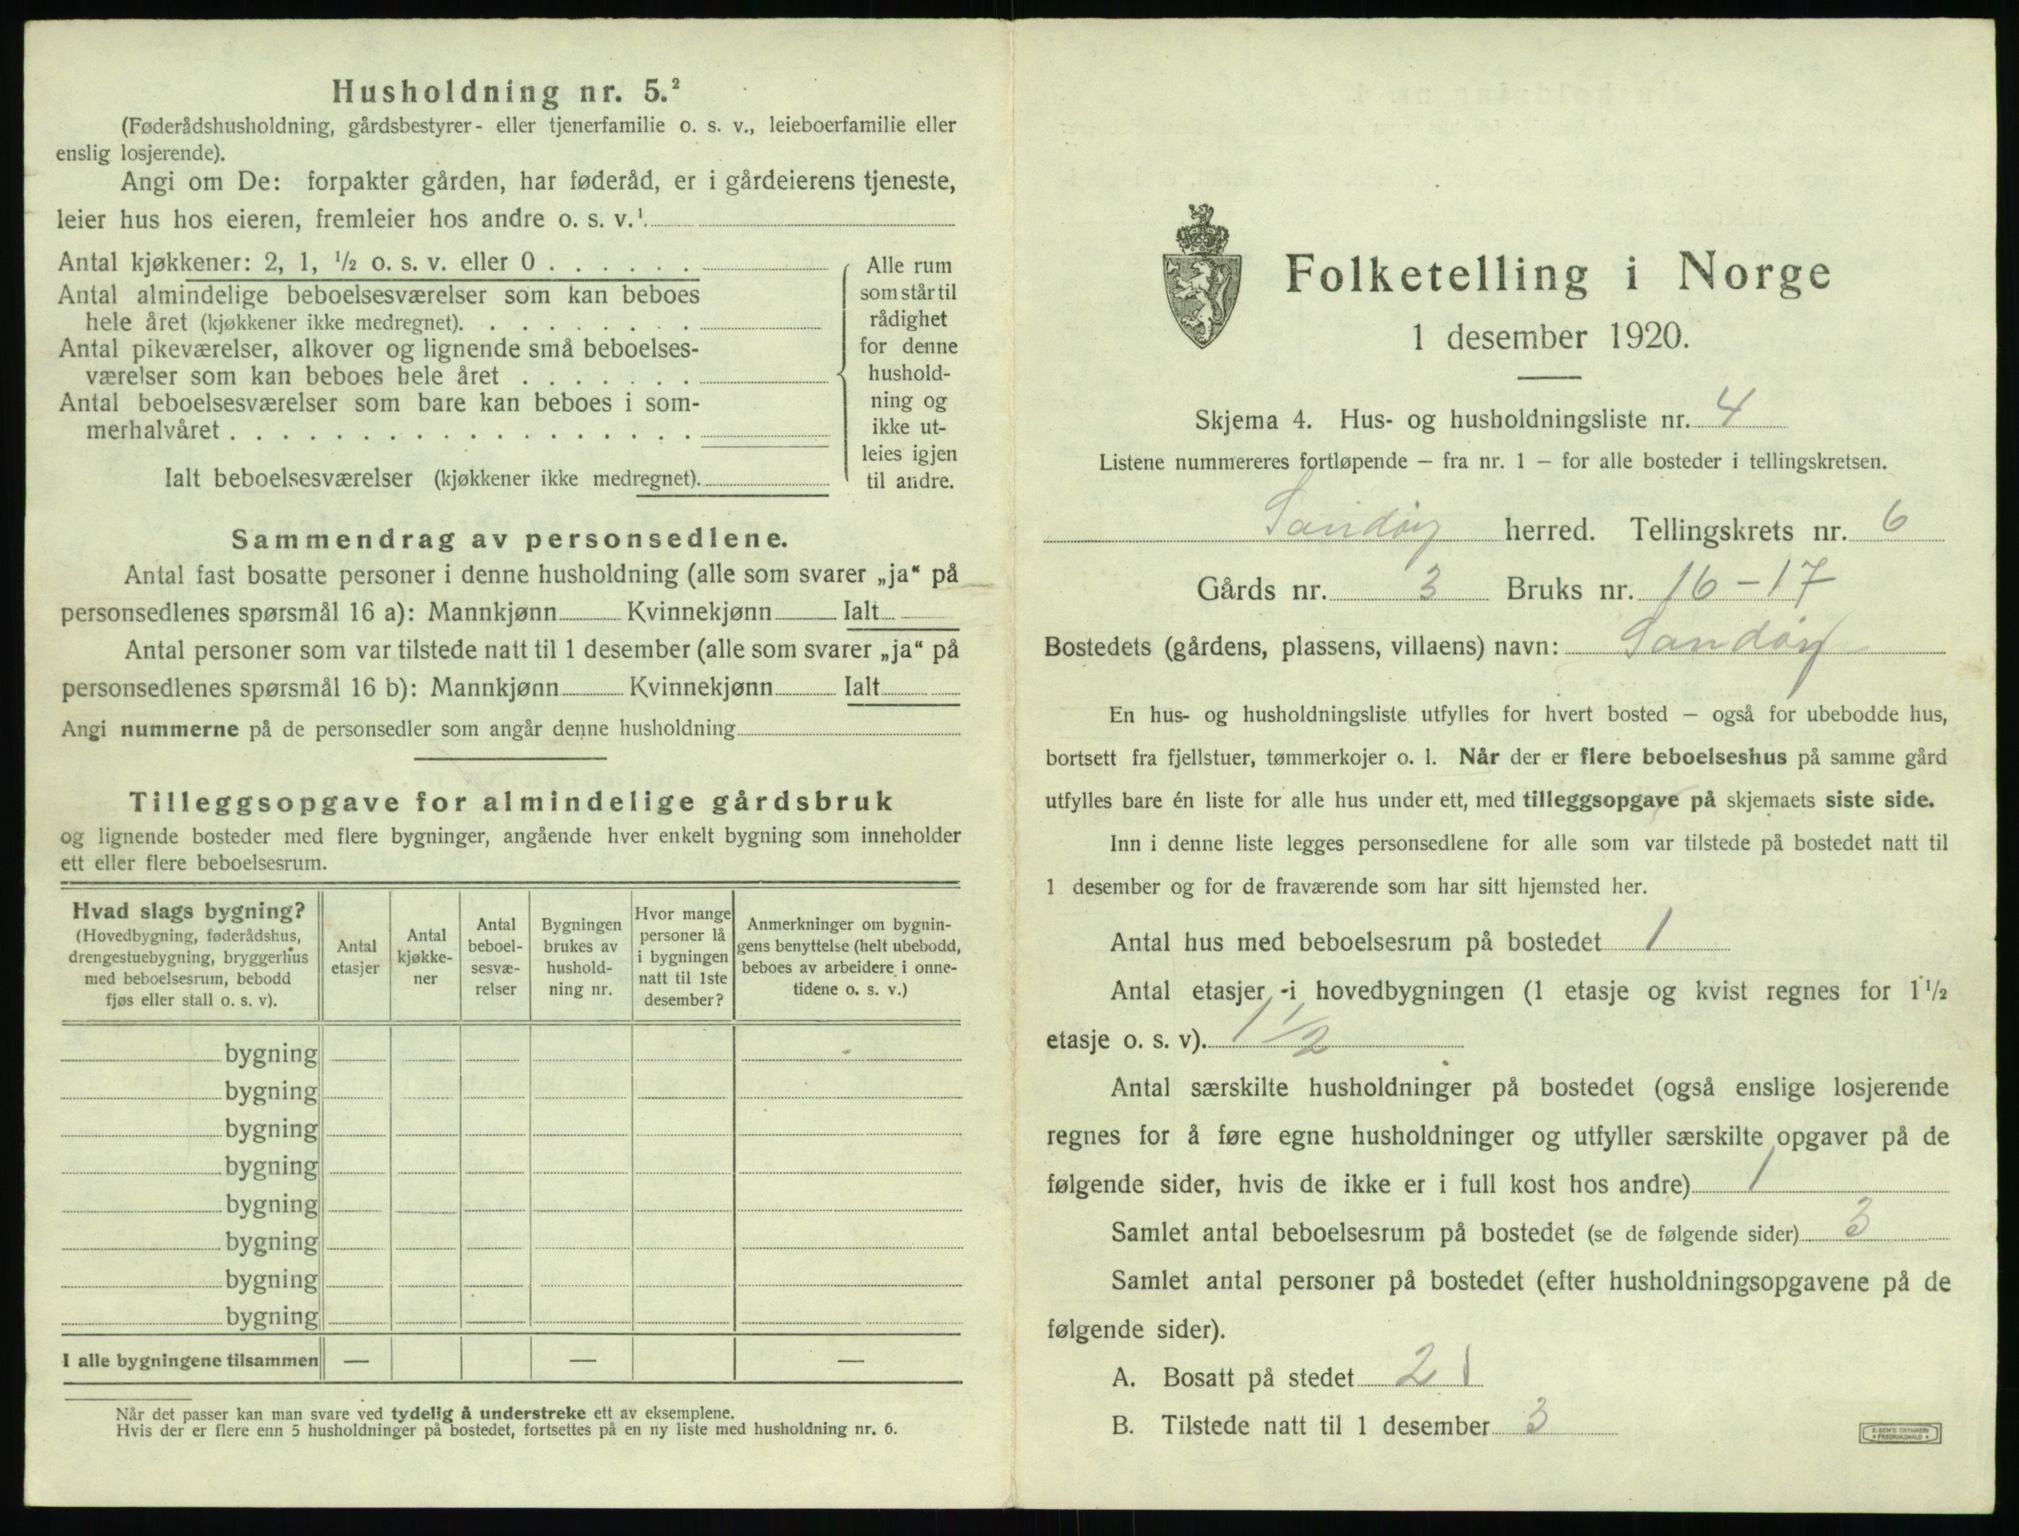 Husholdning nr. 5.²
(Føderådshusholdning, gårdsbestyrer- eller tjenerfamilie o. s. v., leieboerfamilie eller
enslig losjerende).
Angi om De: forpakter gården, har føderåd, er i gårdeierens tjeneste,
leier hus hos eieren, fremleier hos andre o. s. v.¹
Antal kjøkkener: 2, 1, ½ o. s. v. eller 0 . . . . . .
Antal almindelige beboelsesværelser som kan beboes
hele året (kjøkkener ikke medregnet). . . . . . . . .
Antal pikeværelser, alkover og lignende små beboelses-
værelser som kan beboes hele året . . . . . . .
Antal beboelsesværelser som bare kan beboes i som-
merhalvåret . . . . . . . . . . . . . . . . . .
Ialt beboelsesværelser (kjøkkener ikke medregnet).
Alle rum
som står til
rådighet
for denne
hushold-
ning og
ikke ut-
leies igjen
til andre.
Sammendrag av personsedlene.
Antal fast bosatte personer i denne husholdning (alle som svarer „ja“ på
personsedlenes spørsmål 16 a): Mannkjønn Kvinnekjønn Ialt
Antal personer som var tilstede natt til 1 desember (alle som svarer „ja“ på
personsedlenes spørsmål 16 b): Mannkjønn Kvinnekjønn Ialt
Angi nummerne på de personsedler som angår denne husholdning
Tilleggsopgave for almindelige gårdsbruk
og lignende bosteder med flere bygninger, angående hver enkelt bygning som inneholder
ett eller flere beboelsesrum.
Hvad slags bygning?
(Hovedbygning, føderådshus,
drengestuebygning, bryggerhus
med beboelsesrum, bebodd
fjøs eller stall o. s. v).
Antal
etasjer
Antal
kjøkke-
ner
Antal
beboel-
sesvæ-
relser
Bygningen
brukes av
hushold-
ning nr.
Hvor mange
personer lå
i bygningen
natt til 1ste
desember?
Anmerkninger om bygnin-
gens benyttelse (helt ubebodd,
beboes av arbeidere i onne-
tidene o. s. v.)
bygning
bygning
bygning
bygning
bygning
bygning
bygning
bygning
I alle bygningene tilsammen — — —
Når det passer kan man svare ved tydelig å understreke ett av eksemplene.
Hvis der er flere enn 5 husholdninger på bostedet, fortsettes på en ny liste med husholdning nr. 6.
Folketelling i Norge
1 desember 1920.
Skjema 4. Hus- og husholdningsliste nr. 4
Listene nummereres fortløpende – fra nr. 1 – for alle bosteder i tellingskretsen.
Sandøy herred. Tellingskrets nr. 6
Gårds nr. 3 Bruks nr. 16 - 17
Bostedets (gårdens, plassens, villaens) navn: Sandøy
En hus- og husholdningsliste utfylles for hvert bosted – også for ubebodde hus,
bortsett fra fjellstuer, tømmerkojer o. l. Når der er flere beboelseshus på samme gård
utfylles bare én liste for alle hus under ett, med tilleggsopgave på skjemaets siste side.
Inn i denne liste legges personsedlene for alle som var tilstede på bostedet natt til
1 desember og for de fraværende som har sitt hjemsted her.
Antal hus med beboelsesrum på bostedet 1
Antal etasjer i hovedbygningen (1 etasje og kvist regnes for 1½
etasje o. s. v). 1 ½
Antal særskilte husholdninger på bostedet (også enslige losjerende
regnes for å føre egne husholdninger og utfyller særskilte opgaver på de
følgende sider, hvis de ikke er i full kost hos andre) 1
Samlet antal beboelsesrum på bostedet (se de følgende sider) 3
Samlet antal personer på bostedet (efter husholdningsopgavene på de
følgende sider).
A. Bosatt på stedet 2 1
B. Tilstede natt til 1 desember 3